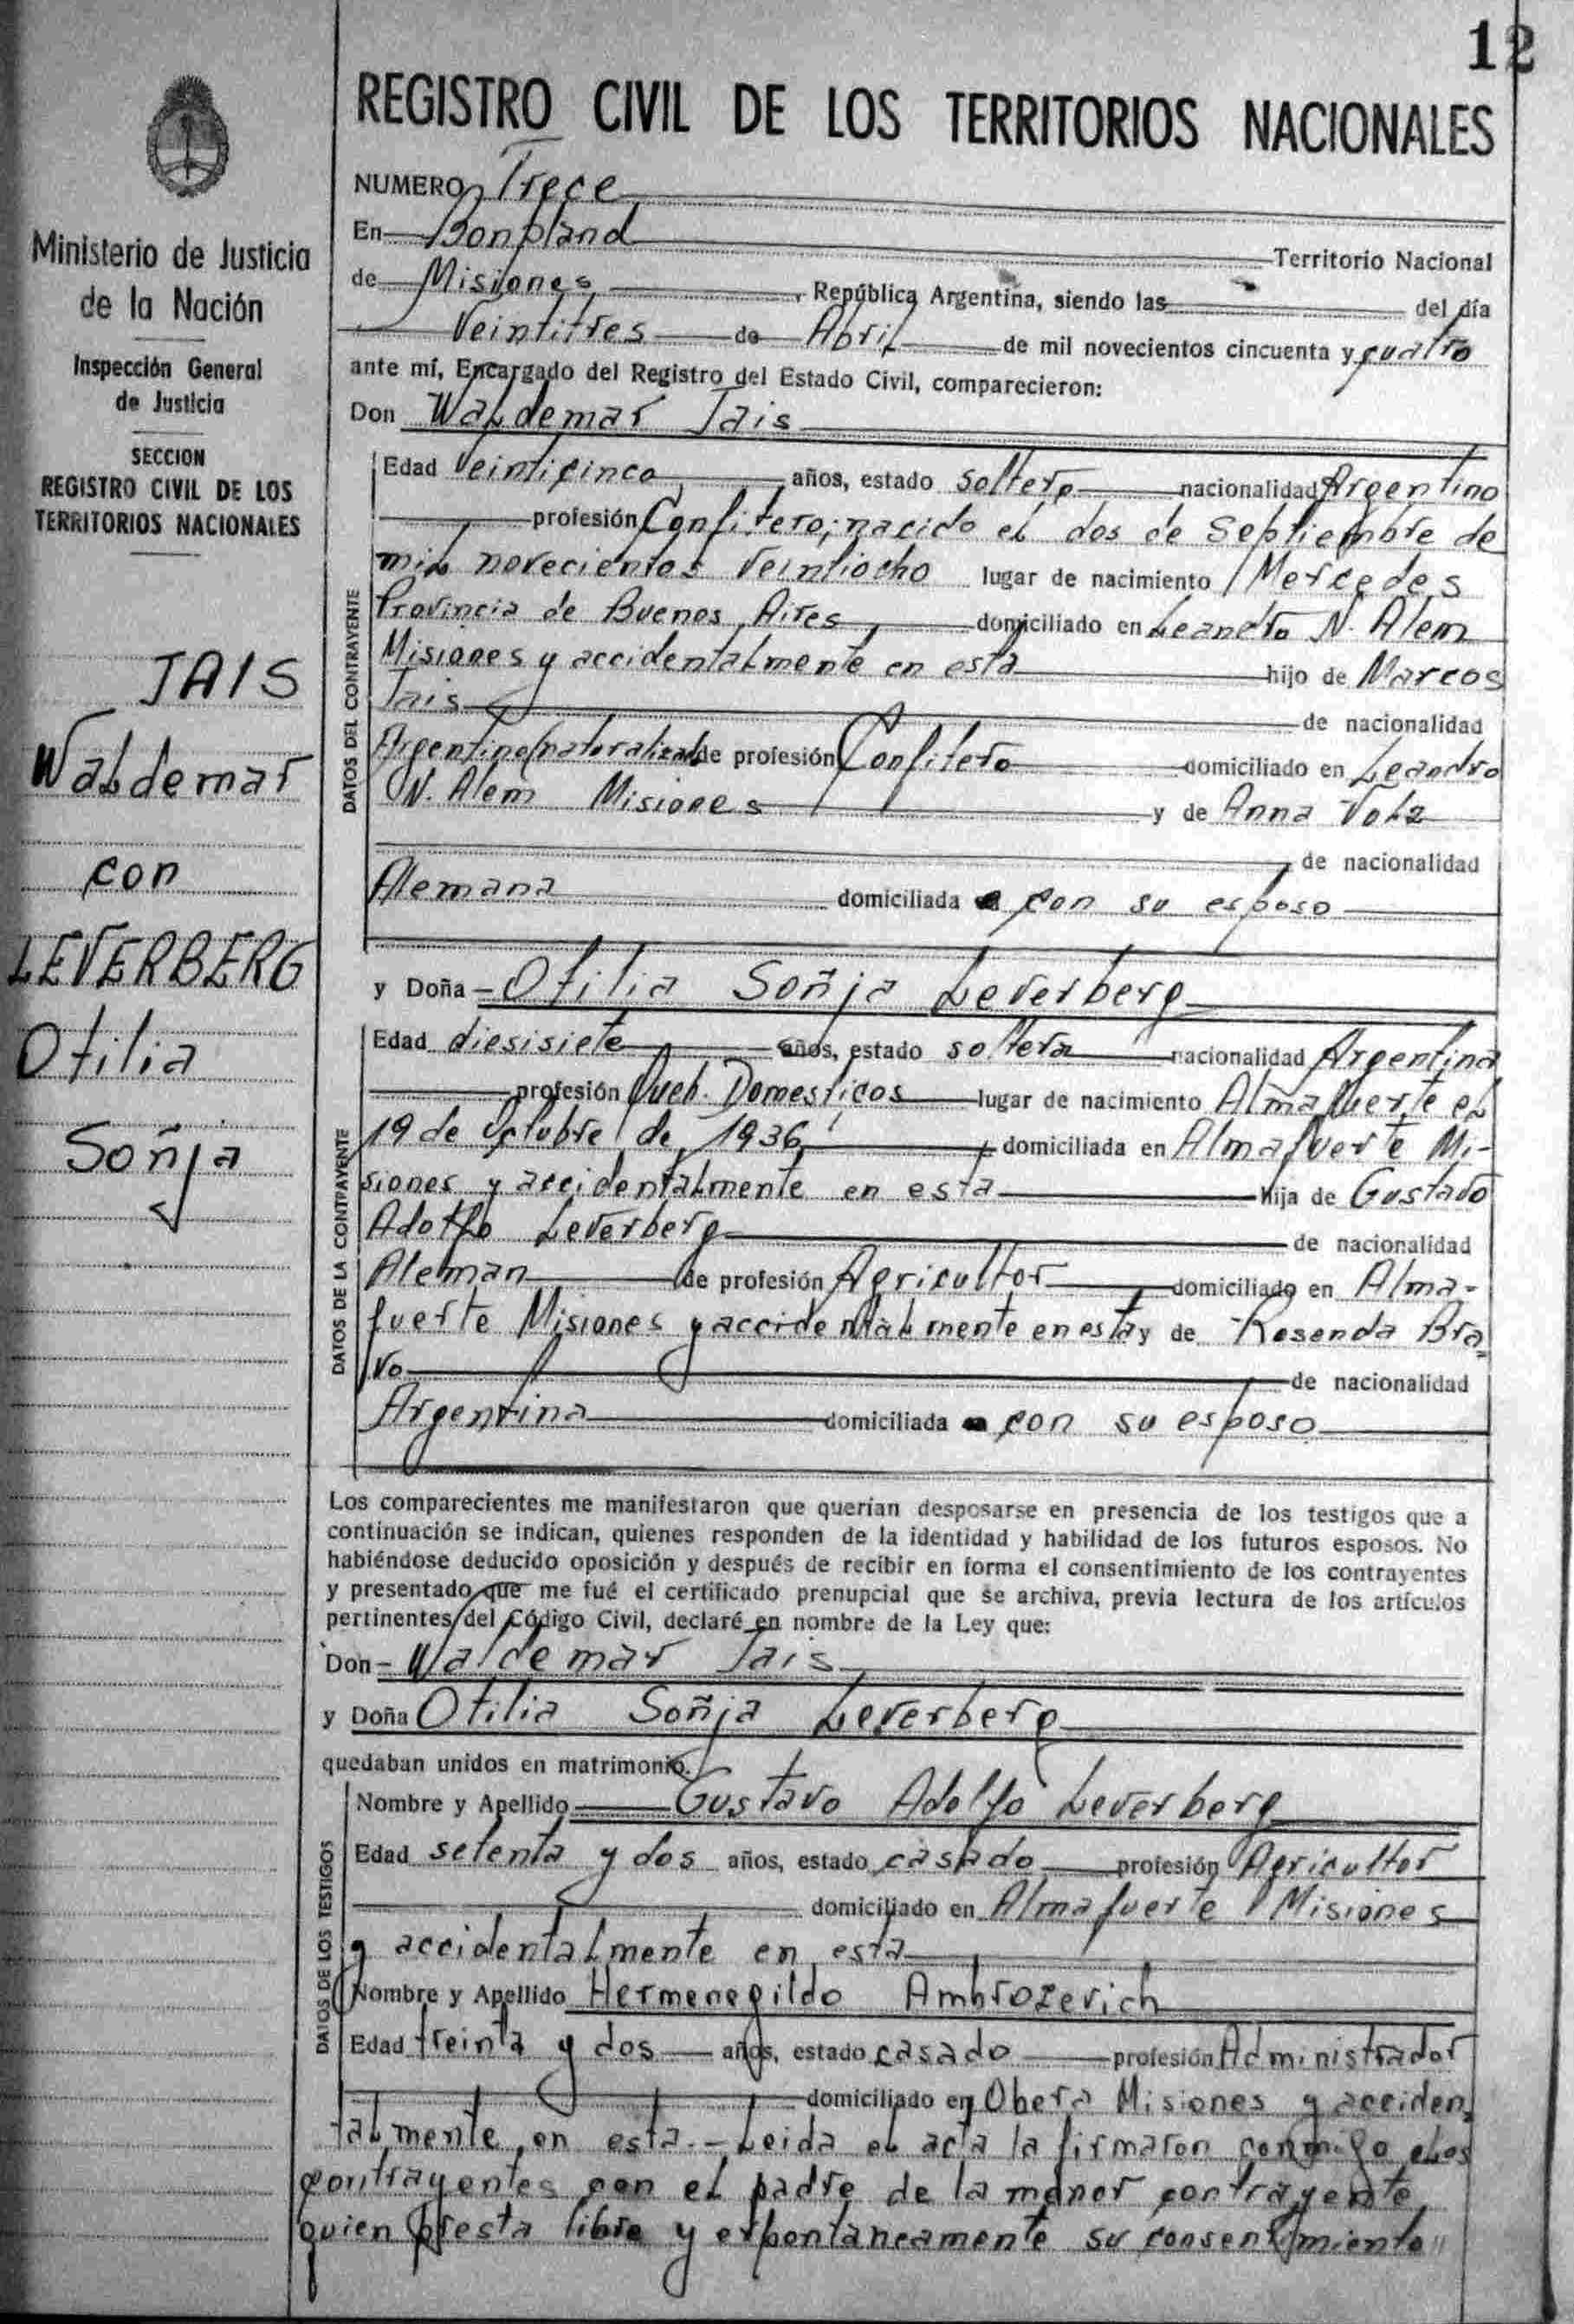 12
REGISTRO CIVIL DE LOS TERRITORIOS NACIONALES
Ministerio de Justicia
de la Nación
Inspección General
de Justicia
SECCION
REGISTRO CIVIL DE LOS
TERRITORIOS NACIONALES
JAIS
Waldemar
con
LEVERBERG
Otilia
Soñja
NUMERO Trece
En Bonpland Territorio Nacional
de Misiones, República Argentina, siendo las del día
Veintitres de Abril de mil novecientos cincuenta y cuatro
ante mí, Encargado del Registro del Estado Civil, comparecieron:
Don Waldemar Jais
DATOS DEL CONTRAYENTE
Edad Veinticinco años, estado soltero nacionalidad Argentino
profesión Confitero; nacido el dos de Septiembre de
mil novecientos Veintiocho lugar de nacimiento Mercedes
Provincia de Buenos Aires domiciliado en Leandro N. Alem
Misiones y accidentalmente en esta hijo de Marcos
Jais de nacionalidad
Argentino (naturalizado de profesión Confitero domiciliado en Leandro
N. Alem Misiones y de Anna Volz
de nacionalidad
Alemana domiciliada con su esposo
y Doña Otilia Soñja Leverberg
DATOS DE LA CONTRAYENTE
Edad diesisiete años, estado soltera nacionalidad Argentina
profesión Queh. Domesticos lugar de nacimiento Almafuerte el
19 de Octubre de 1936 domiciliada en Almafuerte Mi-
siones y accidentalmente en esta hija de Gustavo
Adolfo Leverberg de nacionalidad
Aleman de profesión Agricultor domiciliado en Alma-
fuerte Misiones y accidentalmente en esta y de Rosenda Bra=
vo de nacionalidad
Argentina domiciliada con su esposo
Los comparecientes me manifestaron que querían desposarse en presencia de los testigos que a
continuación se indican, quienes responden de la identidad y habilidad de los futuros esposos. No
habiéndose deducido oposición y después de recibir en forma el consentimiento de los contrayentes
y presentado que me fué el certificado prenupcial que se archiva, previa lectura de los artículos
pertinentes del Código Civil, declaré en nombre de la Ley que:
Don Waldemar Jais
y Doña Otilia Soñja Leverberg
quedaban unidos en matrimonio.
DATOS DE LOS TESTIGOS
Nombre y Apellido Gustavo Adolfo Leverberg
Edad setenta y dos años, estado casado profesión Agricultor
domiciliado en Almafuerte Misiones
y accidentalmente en esta
Nombre y Apellido Hermenegildo Ambrozevich
Edad treinta y dos años, estado casado profesión Administrador
domiciliado en Obera Misiones y acciden=
talmente en esta.- Leida el acta la firmaron conmigo los
contrayentes con el padre de la menor contrayente
quien presta libre y expontaneamente su consentimiento"